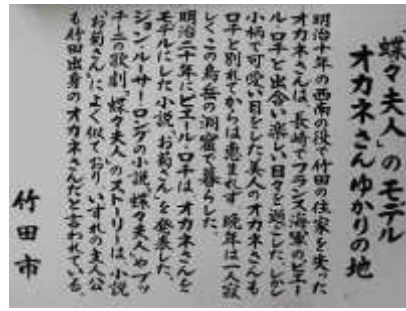 「蝶々夫人」のモデル
オカネさんゆかりの地
明治十年の西南の役で竹田の住家を失った
オカネさんは、長崎でフランス海軍のピエー
ル・ロチと出合い楽しい日々を過ごした。しかし
小柄で可愛い目をした美人のオカネさんも
ロチと別れてからは恵まれず 晩年は一人寂
しくこの鳥岳の洞窟で暮らした。
明治二十年にピエール・ロチは オカネさんを
モデルにした小説、「お菊さん」を発表した。
ジョン・ルーサーロングの小説、「蝶々夫人」や プッ
チーニの歌劇、「蝶々夫人」のストーリーは 小説
「お菊さん」によく似ており いずれの主人公
も竹田出身のオカネさんだと言われている。
竹田市